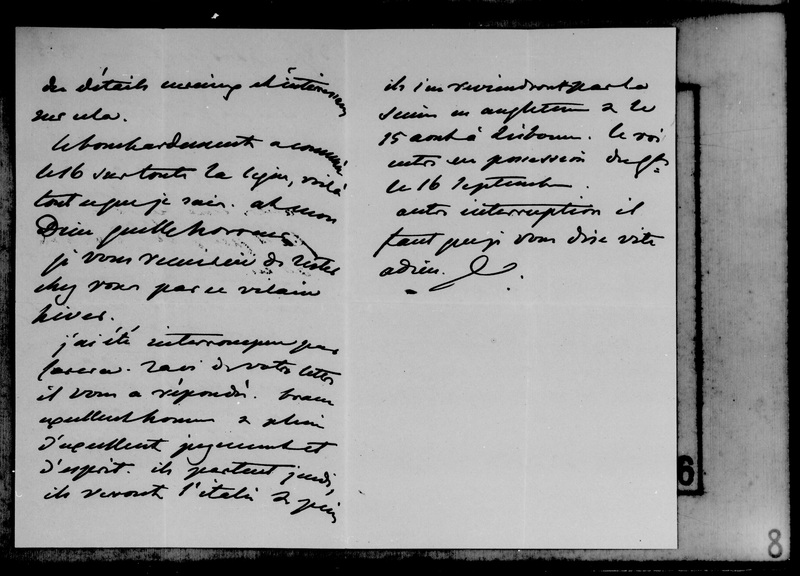 des détails curieux et intéressan
sur cela.
le bombardement a commencé
le 16 sur toute la ligne, voilà
tout ce que je sais. ah mon
Dieu quelle horreur
je vous remercie de rester
chez vous par ce vilain
hiver.
j'ai été interrompue par
ravi de votre lettre
il vous a répondu. brave
excellent homme & plein
d'excellent jugement et
d'esprit. ils partent jeudi,
ils verront l'italie & puis
ils s'en reviendront par la
Suisse en angleterre & le
15 août à Lisbonne. le roi
entre en possession du
le 16 Septembre.
autre interruption il
faut que je vous dise vite
adieu.
6
8